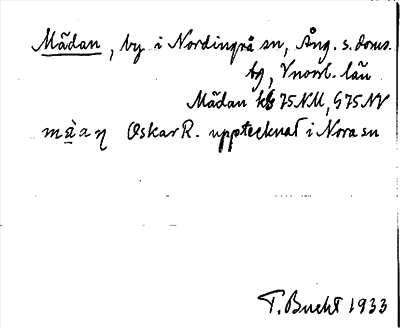 Mädan, by i Nordingrå sn, Ång. s. doms.
tg, Vnorrl. län
Mädan kb 75 NM, G 75 NV
Oskar R. upptecknat i Nora sn
T. Bucht 1933